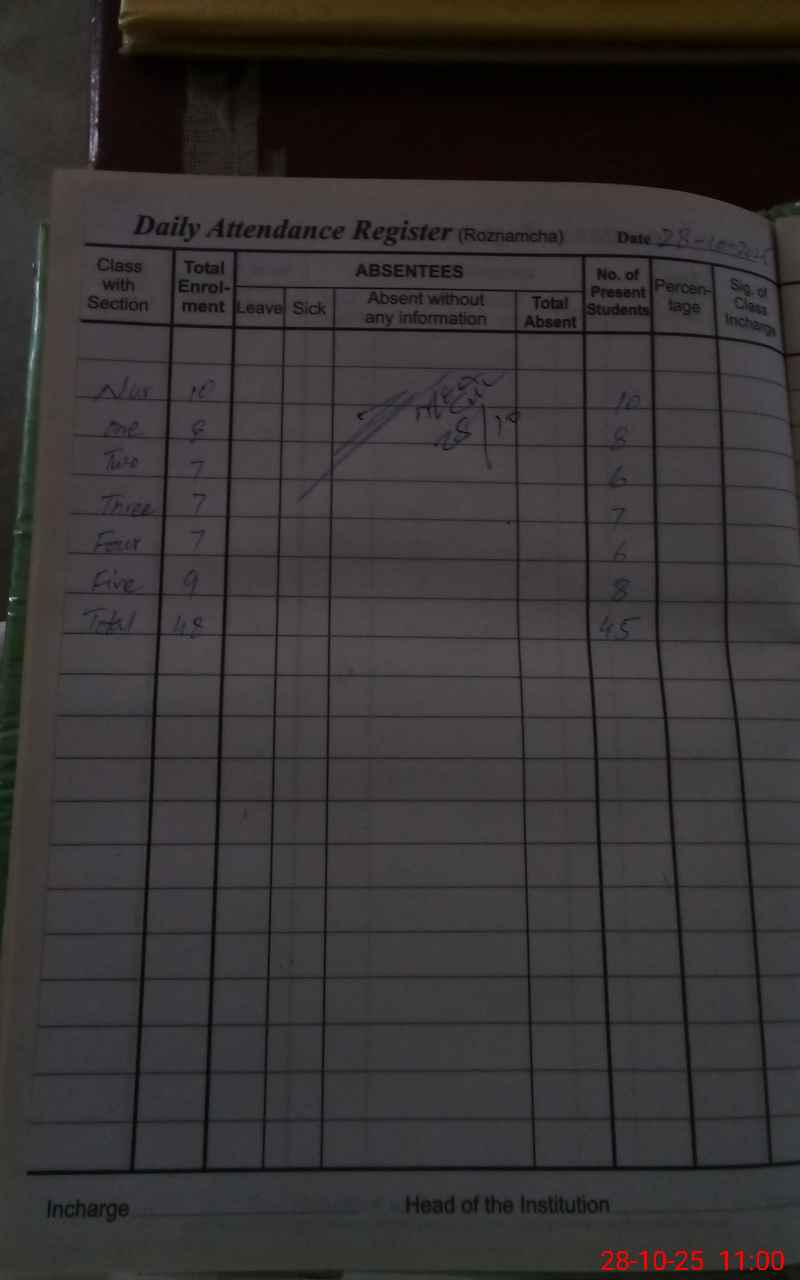 Daily Attendance Register (Roznamcha) Date 28-10-2025
Class with Section Total Enrol-ment ABSENTEES No. of Present Students Percen-tage Sig. of Class Incharge
Leave Sick Absent without any information Total Absent
Nur 10 10
one 8 8
Two 7 6
Three 7 7
Four 7 6
Five 9 8
Total 48 45
28/10
Incharge Head of the Institution
28-10-25 11:00